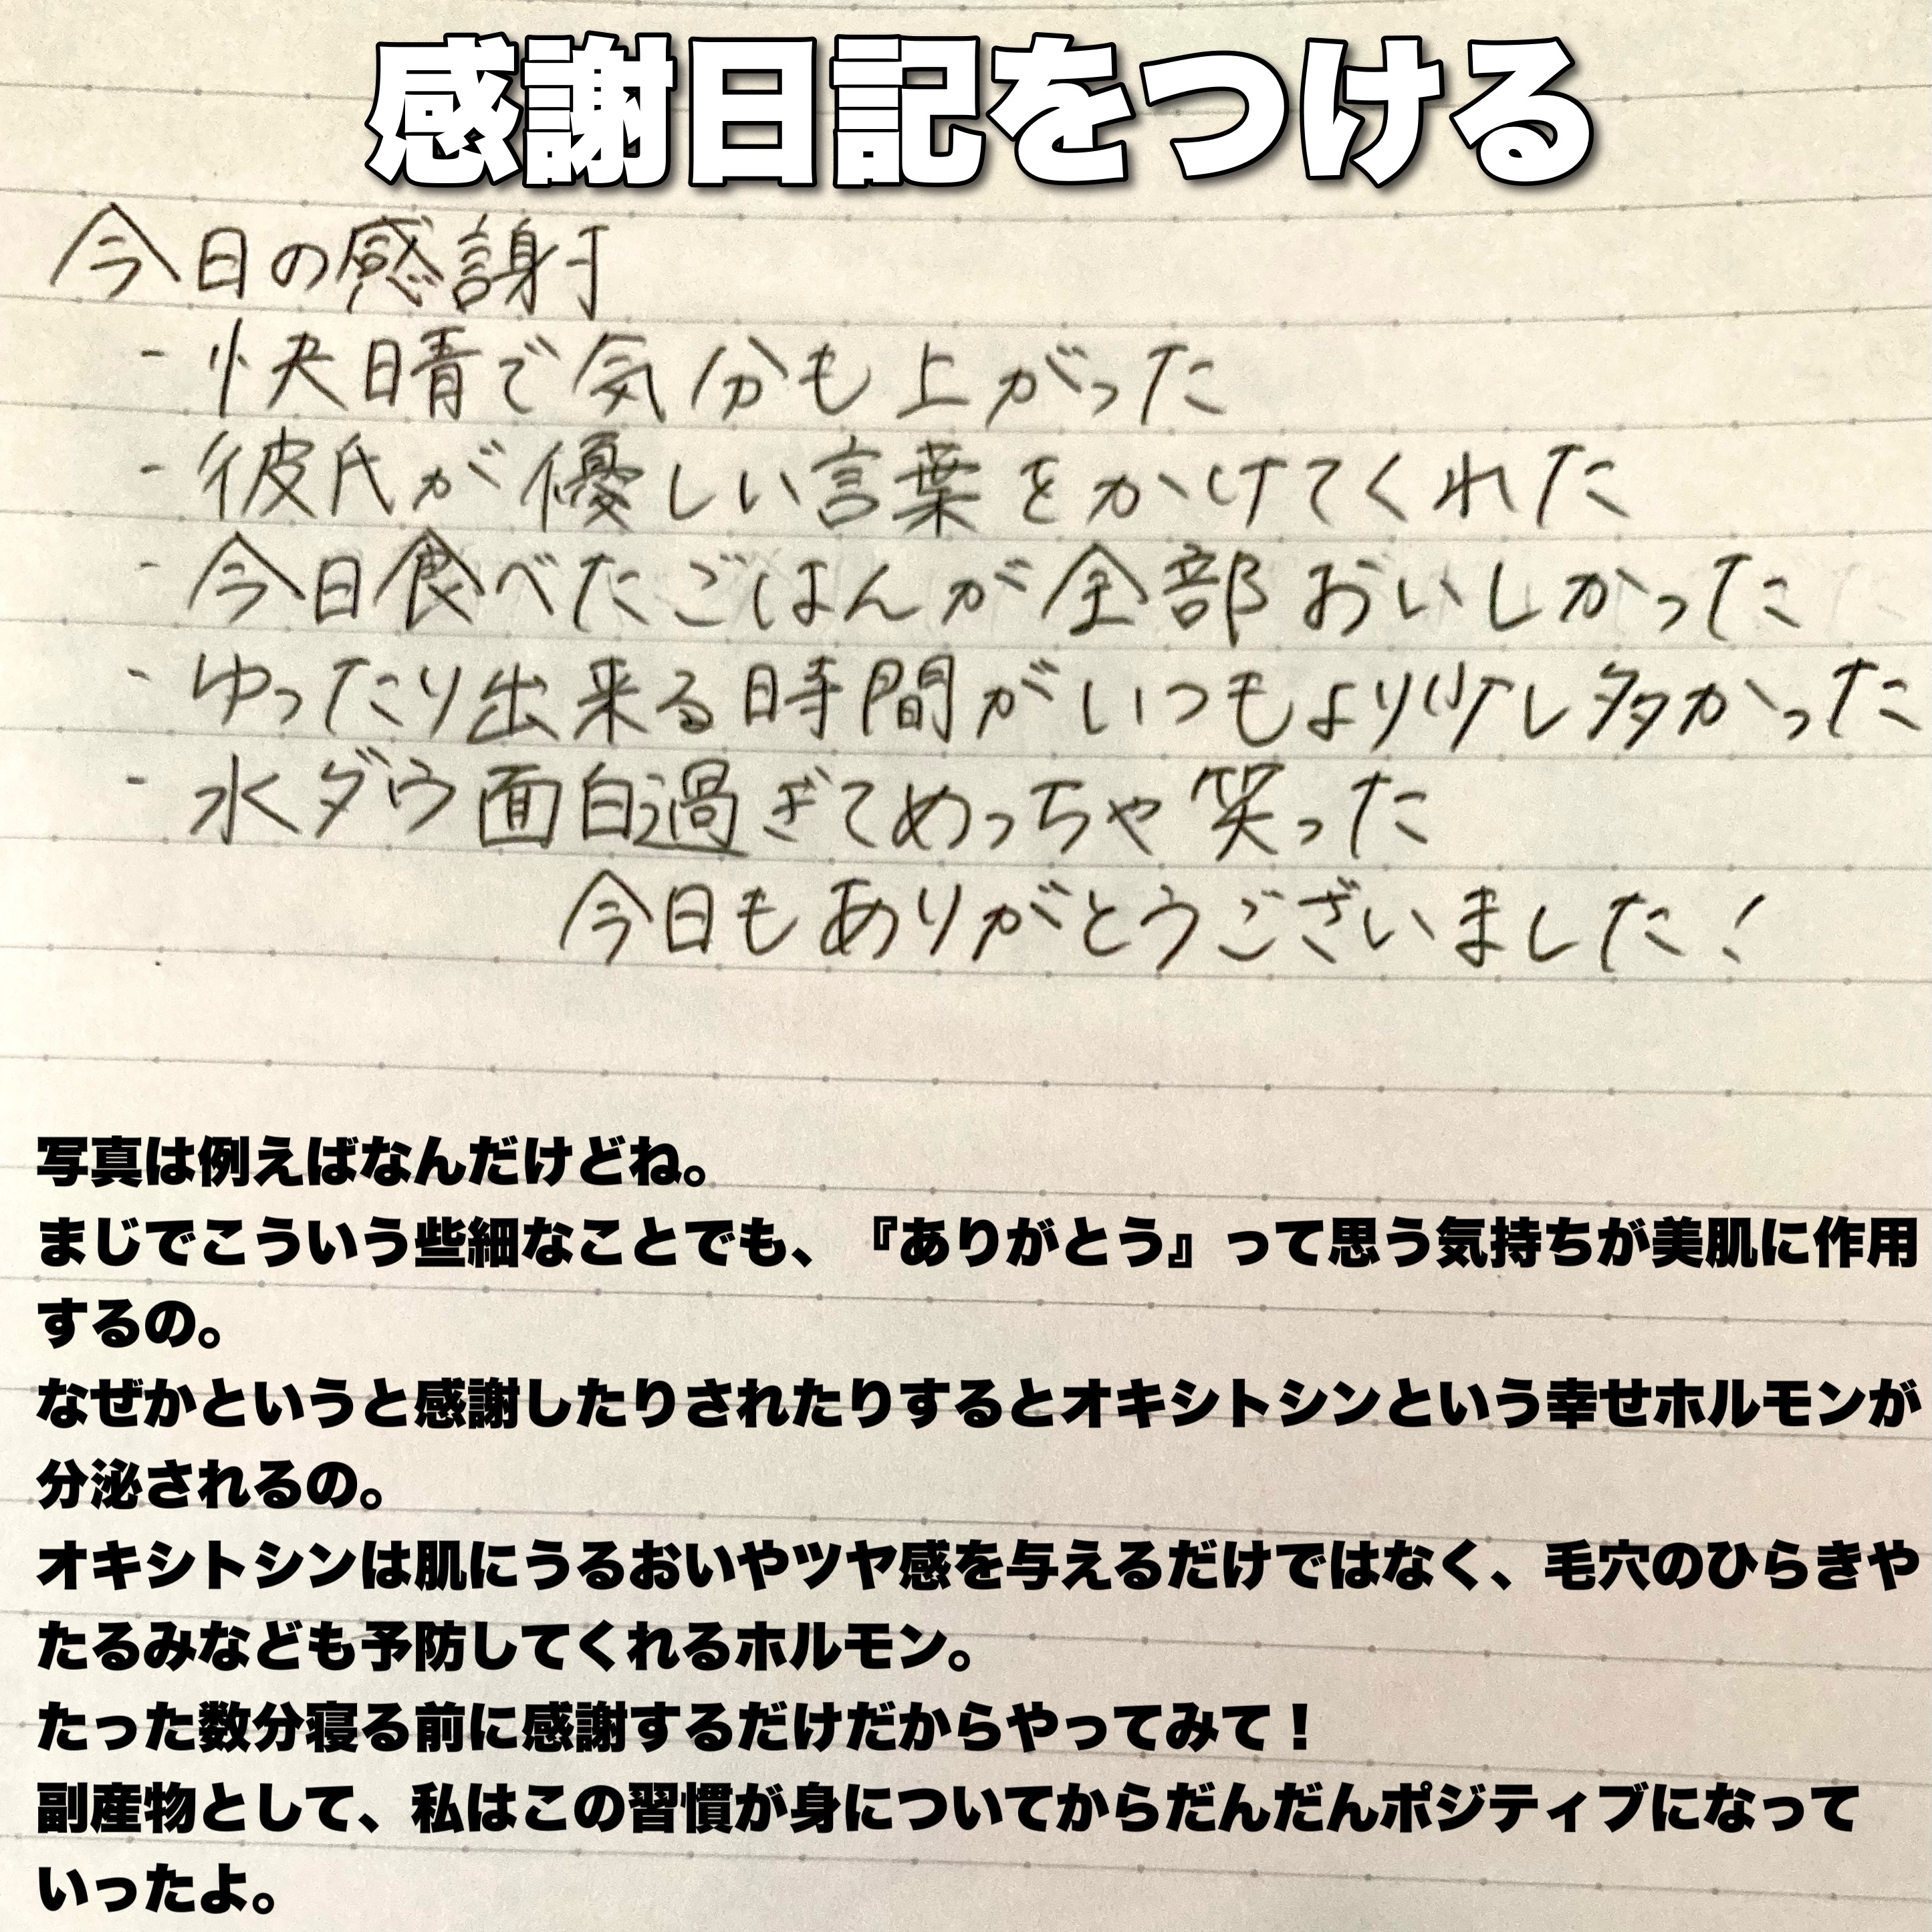 感謝日記をつける
今日の感謝
- 快晴で気分も上がった
- 彼氏が優しい言葉をかけてくれた
- 今日食べたごはんが全部おいしかった
- ゆったり出来る時間がいつもより少し多かった
- 水ダウ面白過ぎてめっちゃ笑った
今日もありがとうございました!
写真は例えばなんだけどね。
まじでこういう些細なことでも、『ありがとう』って思う気持ちが美肌に作用
するの。
なぜかというと感謝したりされたりするとオキシトシンという幸せホルモンが
分泌されるの。
オキシトシンは肌にうるおいやツヤ感を与えるだけではなく、毛穴のひらきや
たるみなども予防してくれるホルモン。
たった数分寝る前に感謝するだけだからやってみて!
副産物として、私はこの習慣が身についてからだんだんポジティブになって
いったよ。